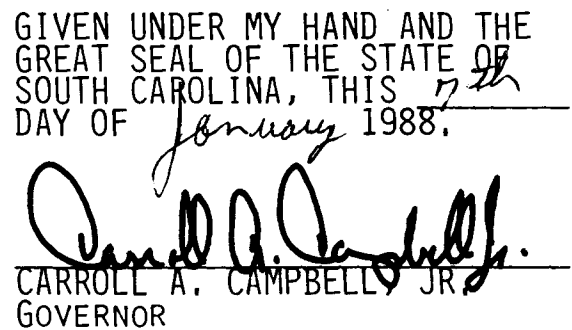 GIVEN UNDER MY HAND AND THE
GREAT SEAL OF THE STATE OF
SOUTH CAROLINA, THIS 7th
DAY OF January 1988.
Carroll A. Campbell Jr.
CARROLL A. CAMPBELL, JR.
GOVERNOR